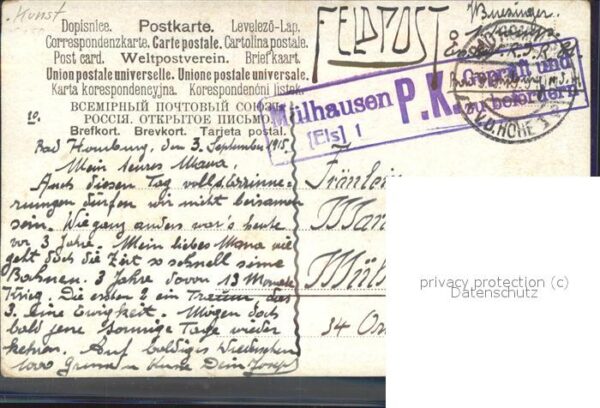 Horst
Dopisnice. Postkarte. Levelező-Lap.
Correspondenzkarte. Carte postale. Cartolina postale.
Post card. Weltpostverein. Briefkaart.
Union postale universelle. Unione postale universale.
Karta korespondencyjna. Korespondenční listek.
ВСЕМІРНЫЙ ПОЧТОВЫЙ СОЮЗЪ
РОССІЯ. ОТКРЫТОЕ ПИСЬМО.
Brefkort. Brevkort. Tarjeta postal.
FELDPOST
Mülhausen
[Els] 1
P.K.
Geprüft und
zu befördern
V.D. HÖHE
Bad Homburg, den 3. September 1915.
Mein teures Mana.
Auch diesen Tag voll Erinne-
rungen dürfen wir nicht beisamen
sein. Wie ganz anders war's heute
vor 3 Jahre. Mein liebes Mana wie
geht doch die Zeit so schnell seine
Bahnen. 3 Jahre davon 13 Monate
Krieg. Die ersten 2 ein Traum, das
3. eine Ewigkeit. Mögen doch
bald jene sonnige Tage wieder
kehren. Auf baldiges Wiedersehen
1000 Grüsse u Küsse Dein Josef
Fräulein
34
privacy protection (c)
Datenschutz